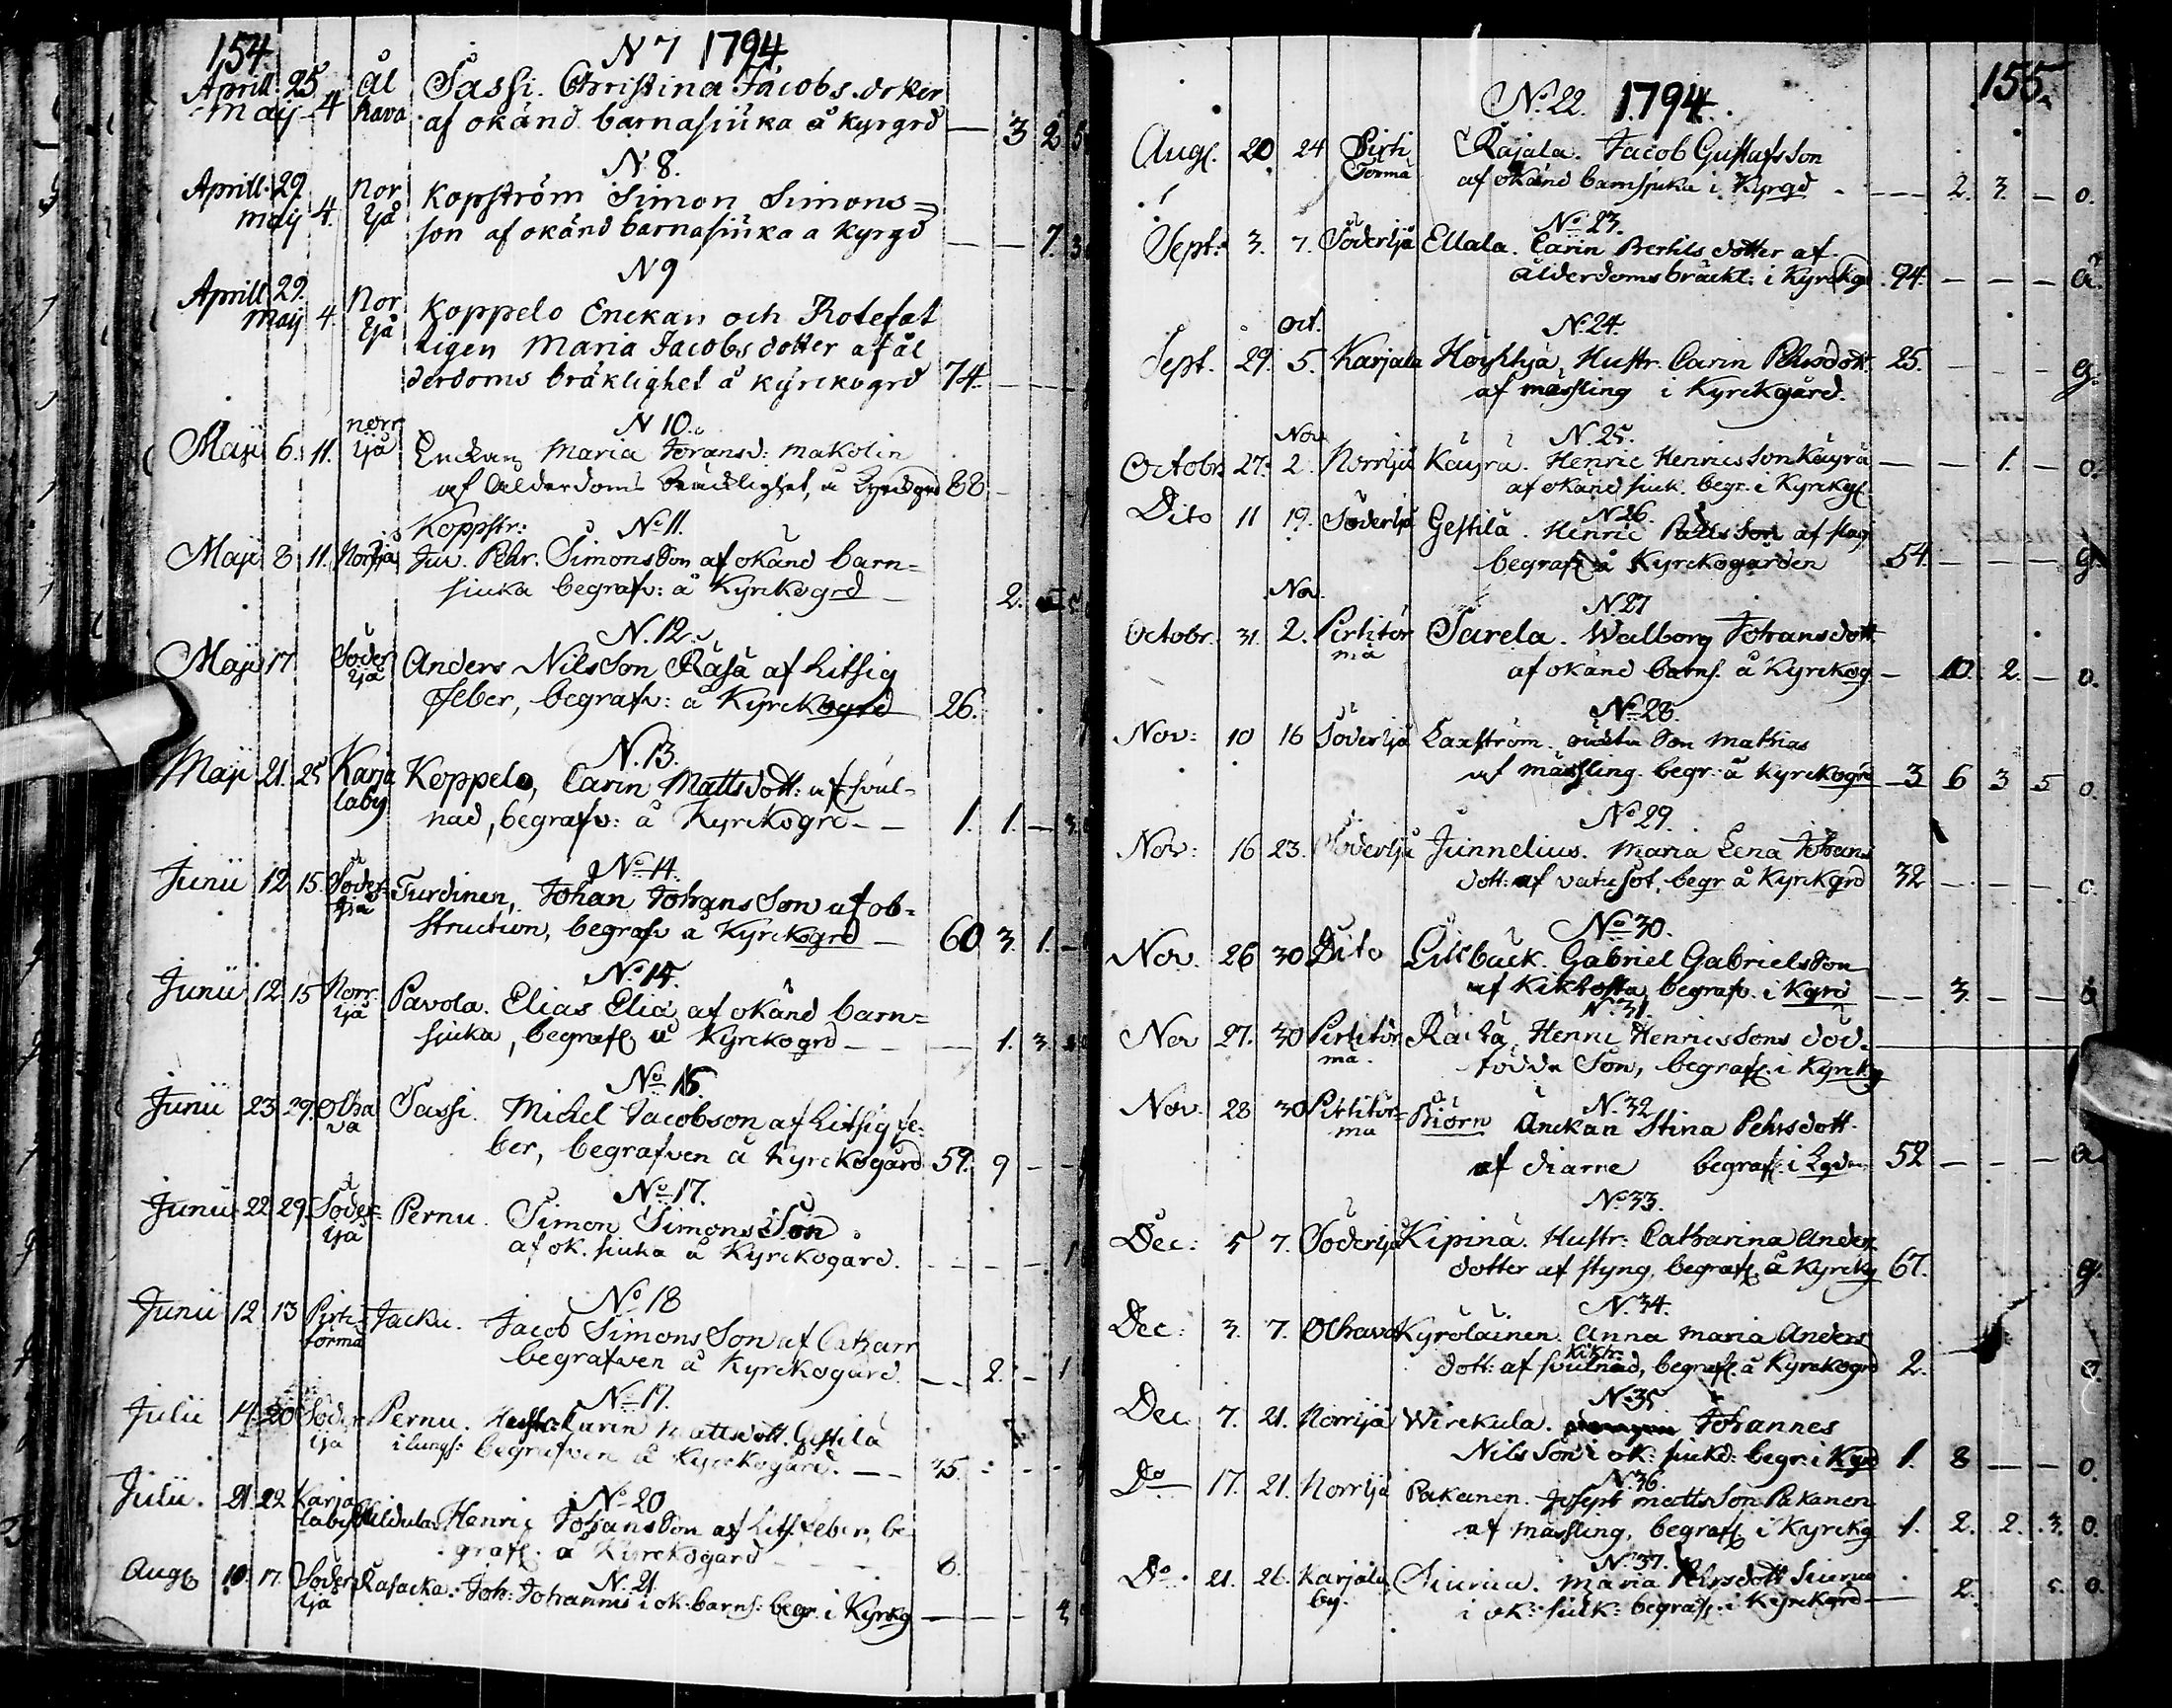 154. N 7 1794.
Aprill. 25 Ål Sassi. Christina Jacobs. dr ker
Maij 4 hava af okänd barnasiuka å kyrgrd — 3 2 5
N 8.
Aprill. 29. Nor Kopström Simon Simons=
maij 4. ijå son af okänd barnasiuka a kyrgd — — 7. 3
N 9
Aprill 29. Nor Koppelo Enckan och Rotefat
Maij 4. ijå tigen Maria Jacobs dotter af ål
derdoms bräklighet å kyrckogrd 74. — —
N 10.
Maji 6. 11. norr ijå Enckan Maria Joransd: makolin
af Ålderdoms bräcklighet, å Kyrckogrd 88 —
Koppstr: No 11.
Maji 8 11. Norrijå Juv. Pehr. Simons Son af okänd barn=
siuka begrafv: å Kyrckogrd — 2.
N. 12.
Maji 17 Söder Anders Nils Son Räsä af hitsig
ijå feber, begrafv: å Kyrckogrd 26.
N. 13.
Maji 21. 25 Karja Koppelo, Carin Mattsdott: af svul-
laby nad, begrafv: å Kyrckogrd — — 1. 1. — 3
No 14.
Junii 12 15. Söder= Turdinen, Johan Johans Son af ob=
ijå struction, begrafv å Kyrckogrd — 60 3. 1. —
No 15.
Junii 12. 15 Norr Pavola. Elias Eliä af okänd barn=
ijå sjuka, begrafv å Kyrckogrd — — — 1. 3.
No 16.
Junii 23 29. Olha Sassi. Michel Jacobson af hitsig fe-
va ber, begrafven å Kyrckogård 59. 9 — —
No 17.
Junii 22 29. Söder= Pernu. Simon Simons Son
ijå af ok. siuka å Kyrckogård. — — — 1
No 18
Junii 12 13 Pirti= Jacku. Jacob Simons Son af Catharr
törmä begrafven å Kyrckogård. — — 2. — 1
No 17.
Julii 14. 20 Söder Pernu. Hustr: Carin Mattsdott. Gestilä
ijå i lungs: begrafven å Kyrckogård. — — 35.
No 20
Julii. 21. 22 Karja Henric Johans Son af hits. feber, be-
laby grafv. å Kyrckogård 8.
N. 21.
Aug 10. 17. Söder Räsacka. Joh: Johannis i ok. barns: begr. i Kyrkg — — — 3
ijå
155.
No. 22. 1794.
Aug. 20 24 Pirti Rajala. Jacob Gustafs Son
Törmä af okänd barnsjuka i Kyrgd — — 2. 3. — o.
No 23.
Sept. 3. 7. Söderijå Ellala. Carin Bertils dotter af
ålderdoms bräckl: i Kyrckgd. 94. — — — a.
No 24.
Oct.
Sept. 29. 5. Karjala Hustr. Carin Pehrsdott. 25. — — — g.
af mässling i Kyrckgård.
N. 25.
Nov
Octobr. 27. 2. Norrijå Käyrä. Henric Henricsson Käyrä — — 1. — o.
af okänd siuk. begr. i Kyrckg.
N 26.
Dito 11 19. Söderijå Gestilä. Henric Palls Son af slag
begraf å Kyrckogården 54. — — — g.
Nov.
N 27
Octobr. 31. 2. Pirtitör Sarela. Walborg Johansdott
mä af okänd barns. å Kyrckog — 10. 2. — o.
No 28.
Nov: 10 16 Söderijå Laxström. Son Mathias
af mässling. begr. å kyrckogrd 3 6 3 5 o.
No 29.
Nov: 16 23. Söderijå Junnelius. Maria Lena Johans
dott: af vatusot, begr å Kyrckgrd 32 — — — o.
No 30.
Nov. 26 30 Dito Lillbäck. Gabriel Gabrielsson
af Kikhosta, begrafv. i Kgrd — — 3. — — o
No 31.
Nov 27. 30 Pirtitör Räitä, Henric Henricssons död-
mä. födde Son, begraf. i Kyrckg
N. 32
Nov. 28 30 Pirtitör= Biörn Änckan Stina Pehrsdott.
mä af diarre begraf. i Kgdn 52 — — — a.
No 33.
Dec: 5 7. Söderijå Kipinä. Hustr: Catharina Anders
dotter af styng, begraf. å Kyrckg 67. g.
N. 34.
Dec: 3. 7. Olhava Kyroläinen. Anna Maria Anders
kikh:
dott: af svulnad, begraf. å Kyrckogrd 2. o.
No 35
Dec. 7. 21. Norrijå Wirckula. Johannes
Nils Son i ok: siukd: begr. i Kyrd 1. 8 — — o.
N. 36.
Do 17. 21. Norrijå Pakanen. Joseph matts Son Pakanen
af mässling, begraf. i Kyrckg 1. 2. 2. 3. o.
No 37.
Do 21. 26. Karjala Siurua. Maria Pehrsdott Siurua
by. i ok: siuk: begraf. i Kyrckgrd — 2. 5. o.